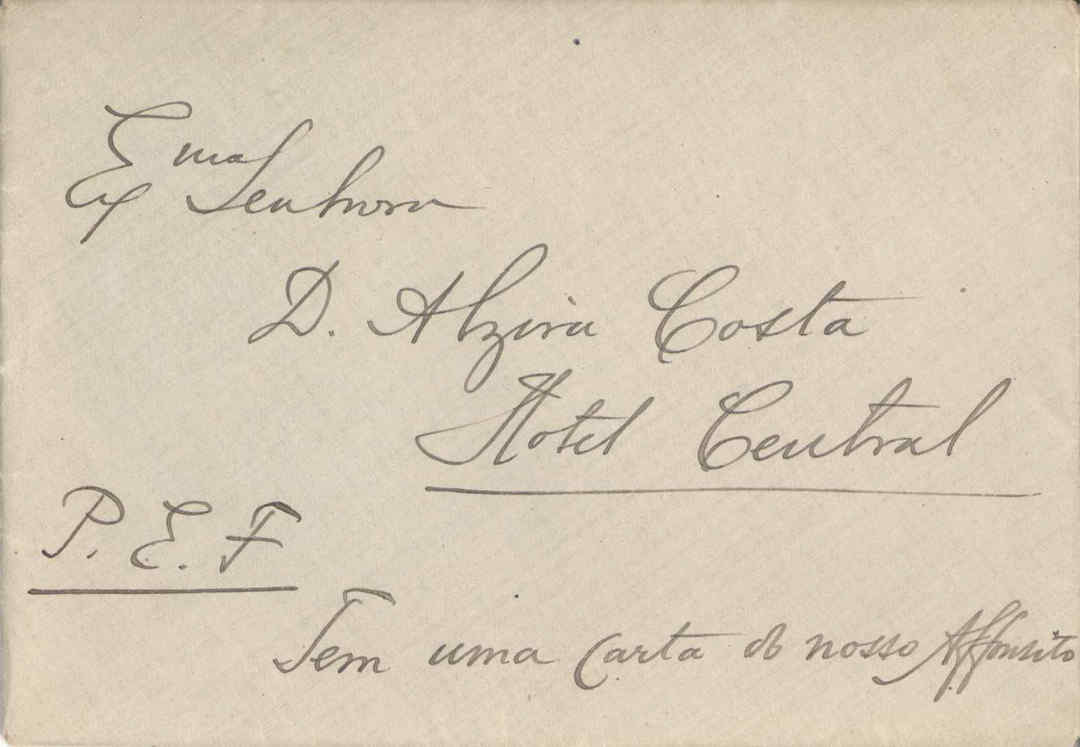 Exma Senhora
D. Alzira Costa
Hotel Central
P. E. F
Tem uma carta do nosso Affonsito